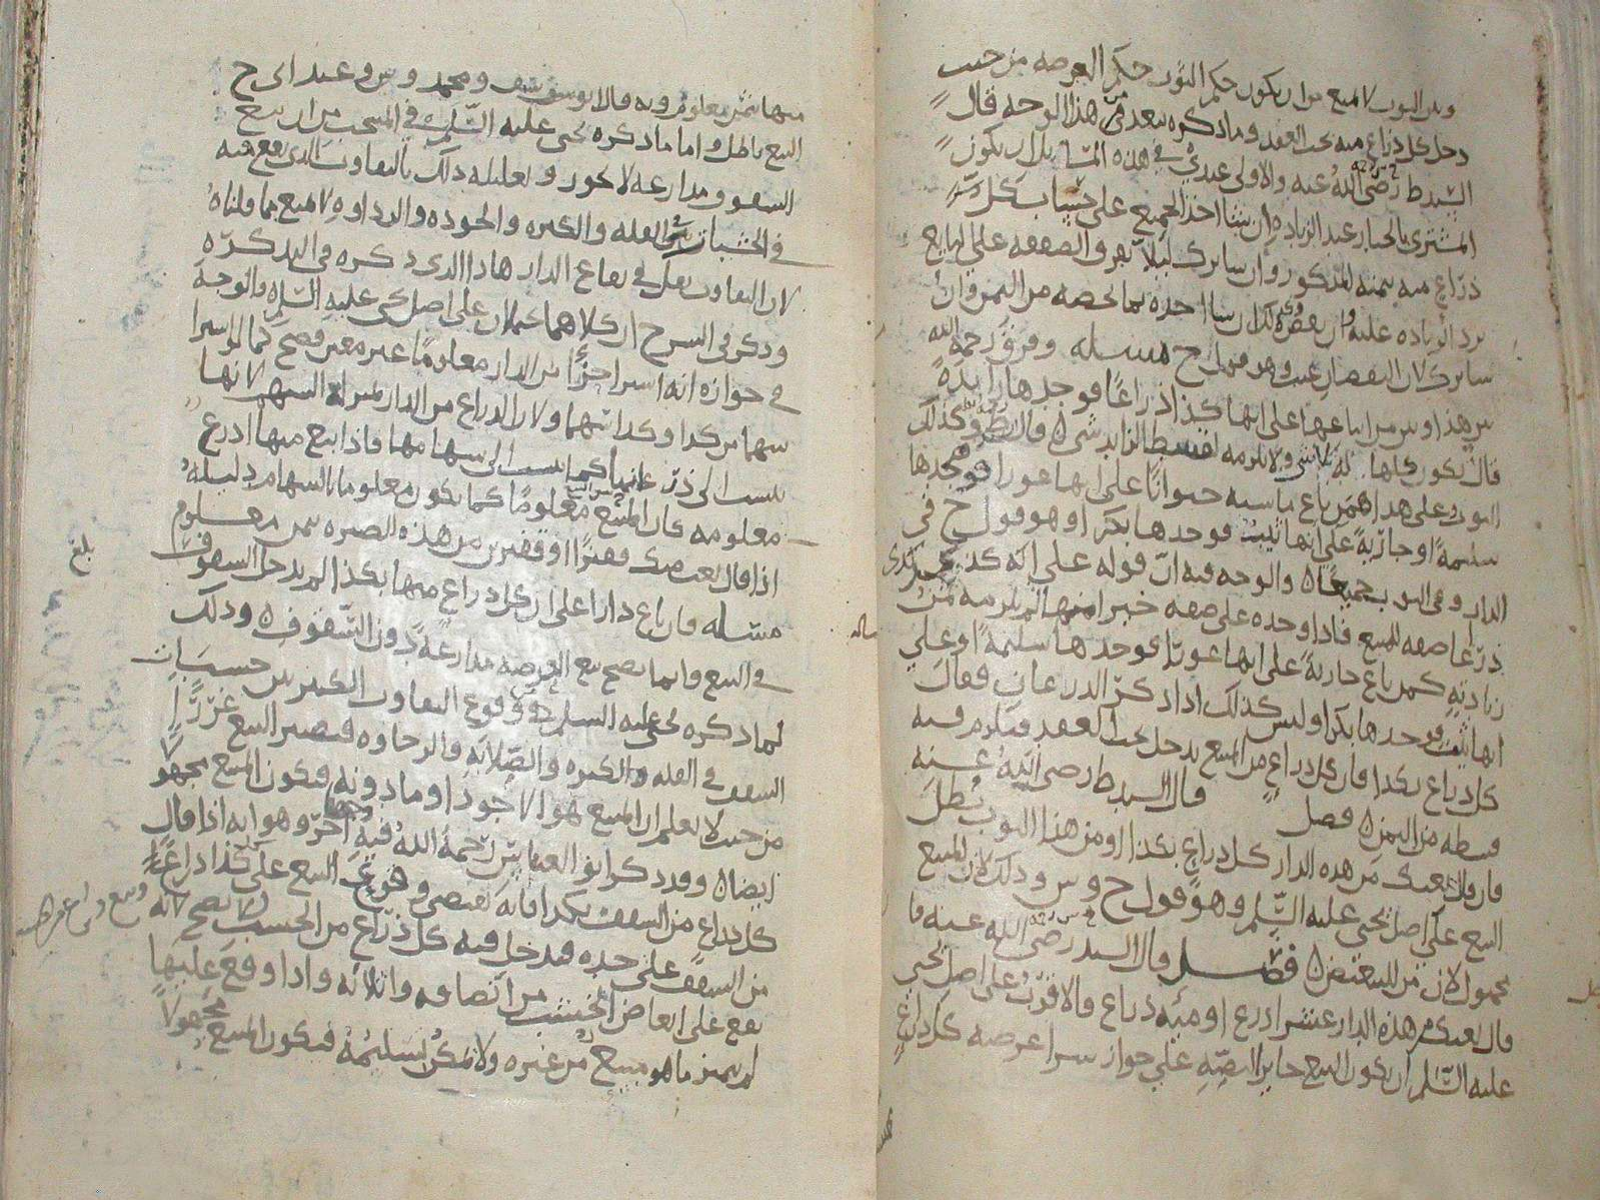 وبين الثوب لا يمتنع من ان يكون حكم الثوب حكم العرصه من حيث
دخل كل ذراع منه تحت العقد وما ذكره بعد من هذا الوجه قال
السيد ط رضي الله عنه والاولى عندي في هذه المسالة ان يكون
المشتري بالخيار عند الزيادة ان شا اخذ الجميع على حساب كل
ذراع منه بثمنه المذكور وان شا ترك ليلا يفرق الصفقه على البايع
برد الزيادة عليه وان نقص كذلك ان شا اخذه بما يخصه من الثمن وان
شا ترك لان النقصان عيب وهو قول ح مسله وفرق رحمه الله
بين هذا وبين من باعها على انها كذا ذراعا فوجدها زايدة
قال يكون كلها له ولا يلزمه لقسط الزايد شي قال ط وكذلك
الثوب وعلى هذا من باع ماشيه حيوانا على انها عورا فوجدها
سليمة او جارية على انها ثيب فوجدها بكرا وهو قول ح في
الدار وفي الثوب جميعا والوجه فيه ان قوله على انه كذى
ذراعا صفه للمبيع فاذا وجده على صفه خيرا منها لم يلزمه ثمن
زيادته كمن باع جارية على انها عورا فوجدها سليمة او على
انها ثيب فوجدها بكرا وليس كذلك اذا ذكر الذرعان فقال
كل ذراع بكذا فان كل ذراع من المبيع يدخل تحت العقد فيلزم فيه
قسطه من الثمن فصل قال السيد ط رضي الله عنه
فان قال بعتك من هذه الدار كل ذراع بكذا او من هذا الثوب بطل
البيع على اصل يحيى عليه السلم وهو قول ح وش وذلك لان المبيع
مجهول لان من للتبعيض فصل قال السيد رضي الله عنه فا
قال بعتك من هذه الدار عشر اذرع او مئه ذراع فالاقرب على اصل يحيى
عليه السلم ان يكون البيع جايز النصه على جواز شرا عرصه كل ذراع
منها بثمن معلوم وبه قال ابو يوسف ومحمد وش وعند ابي ح
البيع باطل واما ما ذكره يحيى عليه السلم في المنتخب من ان بيع
السقوف مذارعه لا يجوز وتعليله ذلك بالتفاوت الذي يقع فيه
في الخشبات من القله والكثره والجوده والرداوه لا يمنع مما قلناه
لان التفاوت يقل في بقاع الدار هذا الذي ذكره في التذكرة
وذكر في الشرح ان كلاهما يحملان على اصل يحيى عليه السلم والوجه
في جوازه انه اشترا جزا من الدار معلوما غير معين فصح كما لو اشترا
سهما من كذا وكذا سهما ولان الذراع من الدار بمنزلة السهم لانها
تنسب الى ذرعانها كما تنسب الى سهامها فاذا بيع منها اذرع
معلومه كان المبيع معلوما كما يكون معلوما بالسهام دليله
اذا قال بعت منك قفيزا او قفيزين من هذه الصبره بثمن معلوم
مسله فان باع دارا على ان كل ذراع منها بكذا لم يدخل السقوف
في البيع وانما يصح بيع العرصه مذارعة دون السقوف وذلك
لما ذكره يحيى عليه السلم من وقوع التفاوت الكثير بين خشبات
السقف في القله والكثره والصلابه والرخاوه فيصير البيع غررا
من حيث لا يعلم ان المبيع هو الاجود او ما دونه فيكون المبيع مجهو
لا ايضا وقد ذكر ابو العباس رحمه الله فيه وجها اخر وهو انه اذا قال
كل ذراع من السقف بكذا فانه يقتضي وقوع البيع على كل ذراع
من السقف على حده فدخل فيه كل ذراع من الخشب ولا يصح لانه
يقع على ابعاض الخشب من انصافه واثلاثه واذا وقع عليها
لم يتميز ما هو مبيع من غيره ولا يمكن تسليمه فيكون المبيع مجهولا
بلغ